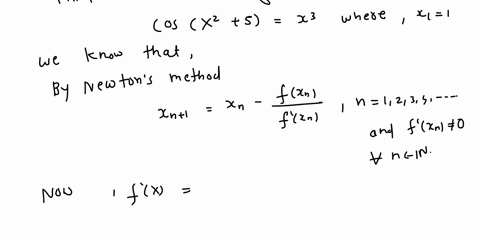 cos (x² + 5) = x³ where, x₁ = 1
we know that,
By Newton's method
xₙ₊₁ = xₙ - f(xₙ)/f'(xₙ) , n = 1, 2, 3, 4, .....
and f'(xₙ) ≠ 0
∀ n ∈ ℕ.
Now , f'(x) =